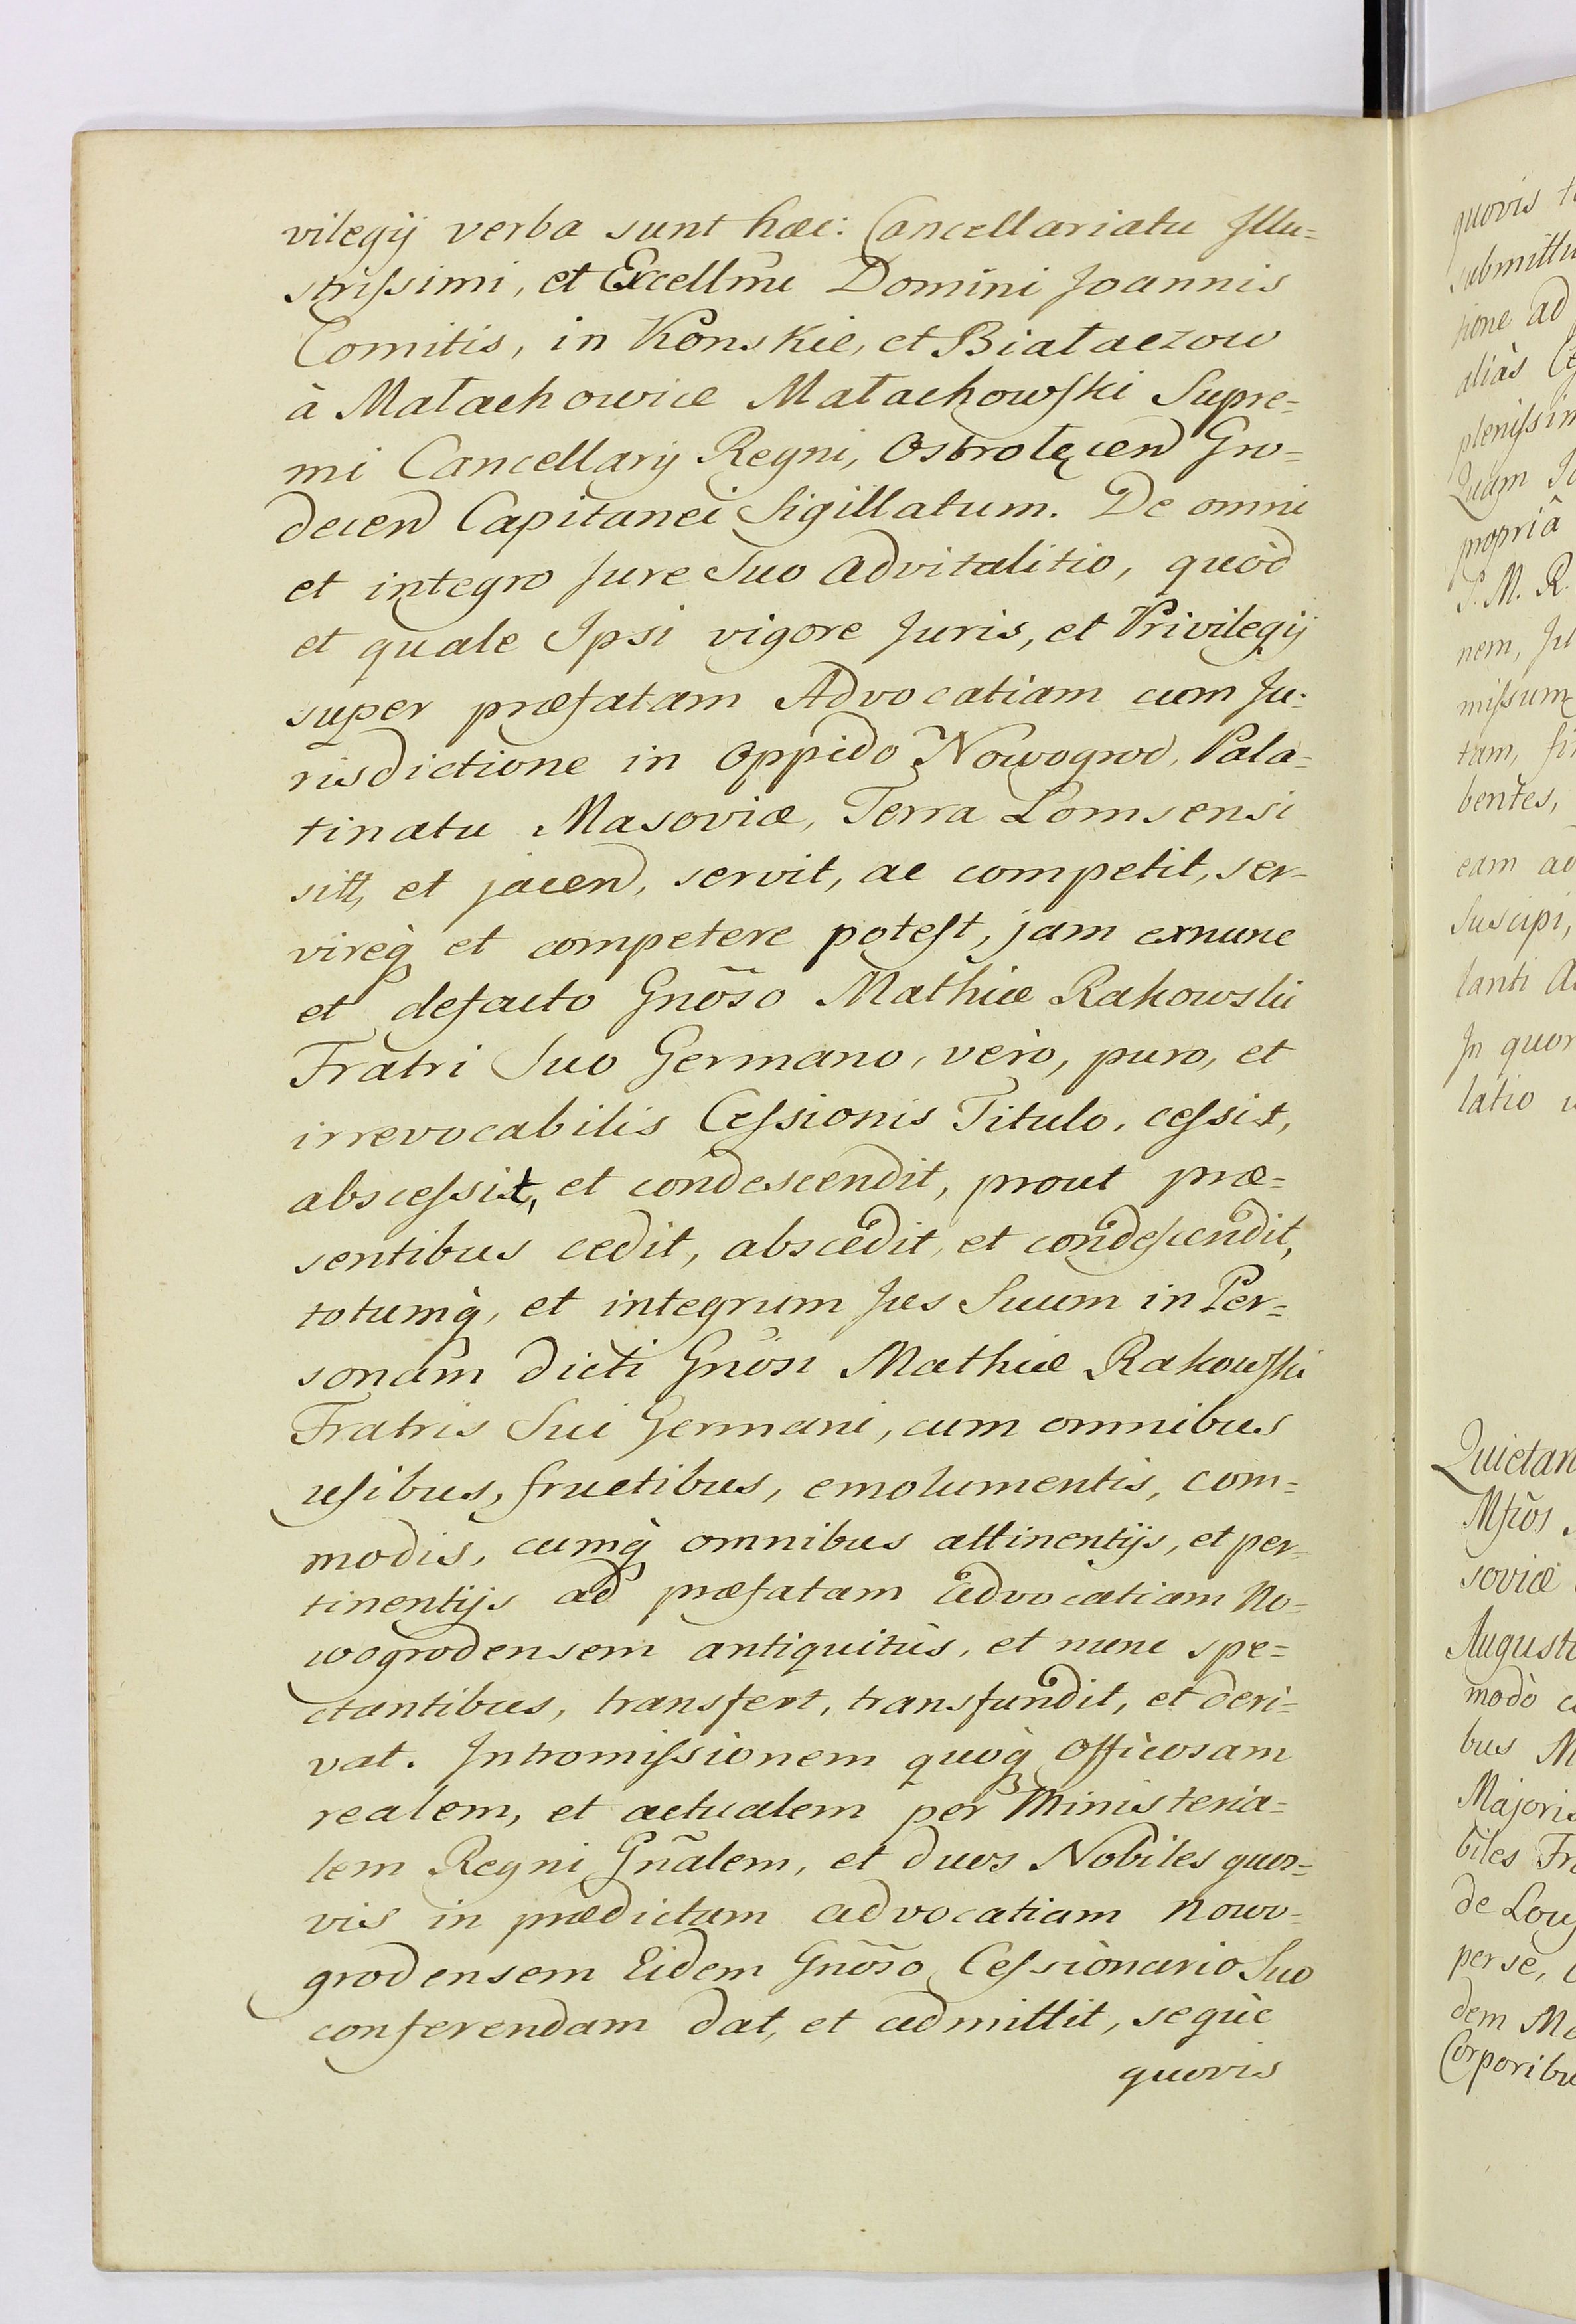 vilegij verba sunt hæc: Cancellariatu Illu=
strissimi, et Excellm̃i Domini Joannis
Comitis, in Konskie, et Białaczow
à Małachowice Małachowski Supre=
mi Cancellarij Regni, Ostrołęcen Gro=
decen Capitanei Sigillatum. De omni
et integro Jure Suo advitalitio, quòd
et quale Ipsi vigore Juris, et Privilegij
super præfatam Advocatiam cum Ju=
risdictione in Oppido Nowogrod, Pala=
tinatu Masoviæ, Terra Lomsensi
sitt, et jacen, servit, ac competit, ser=
vireq̀ et competere potest, jam exnunc
et defacto Gnõso Mathiæ Rakowski
Fratri Suo Germano, verò, puro, et
irrevocabilis Cessionis Titulo, cessit,
abscessit, et condescendit, prout præ=
sentibus cedit, abscedit, et condescendit,
totumq̀, et integrum Jus Suum in Per=
sonam dicti Gnõsi Mathiæ Rakowski
Fratris Sui Germani, cum omnibus
usibus, fructibus, emolumentis, com=
modis, cumq̀ omnibus attinentijs, et per=
tinentijs ad præfatam advocatiam No=
wogrodensem antiquitùs, et nunc spe=
ctantibus, transfert, transfundit, et deri=
vat. Intromissionem quoq̀ officosam
realem, et actualem per Ministeria=
lem Regni Gñalem, et duos Nobiles quos=
vis in prædictam advocatiam Nowo=
grodensem Eidem Gnõso Cessionario Suo
conferendam dat, et admittit, seque
quovis
quovis
submittu
tione ad
aliàs
plenissim
Quam
propriâ
S. M. R.
nem, Ju
missum
tam,
bentes,
eam ad
Suscipi,
lanti
In quor
latio
Quietan
soviæ
Augusto
modò
bus
Majoris
biles
de
per se,
dem
Corporibu